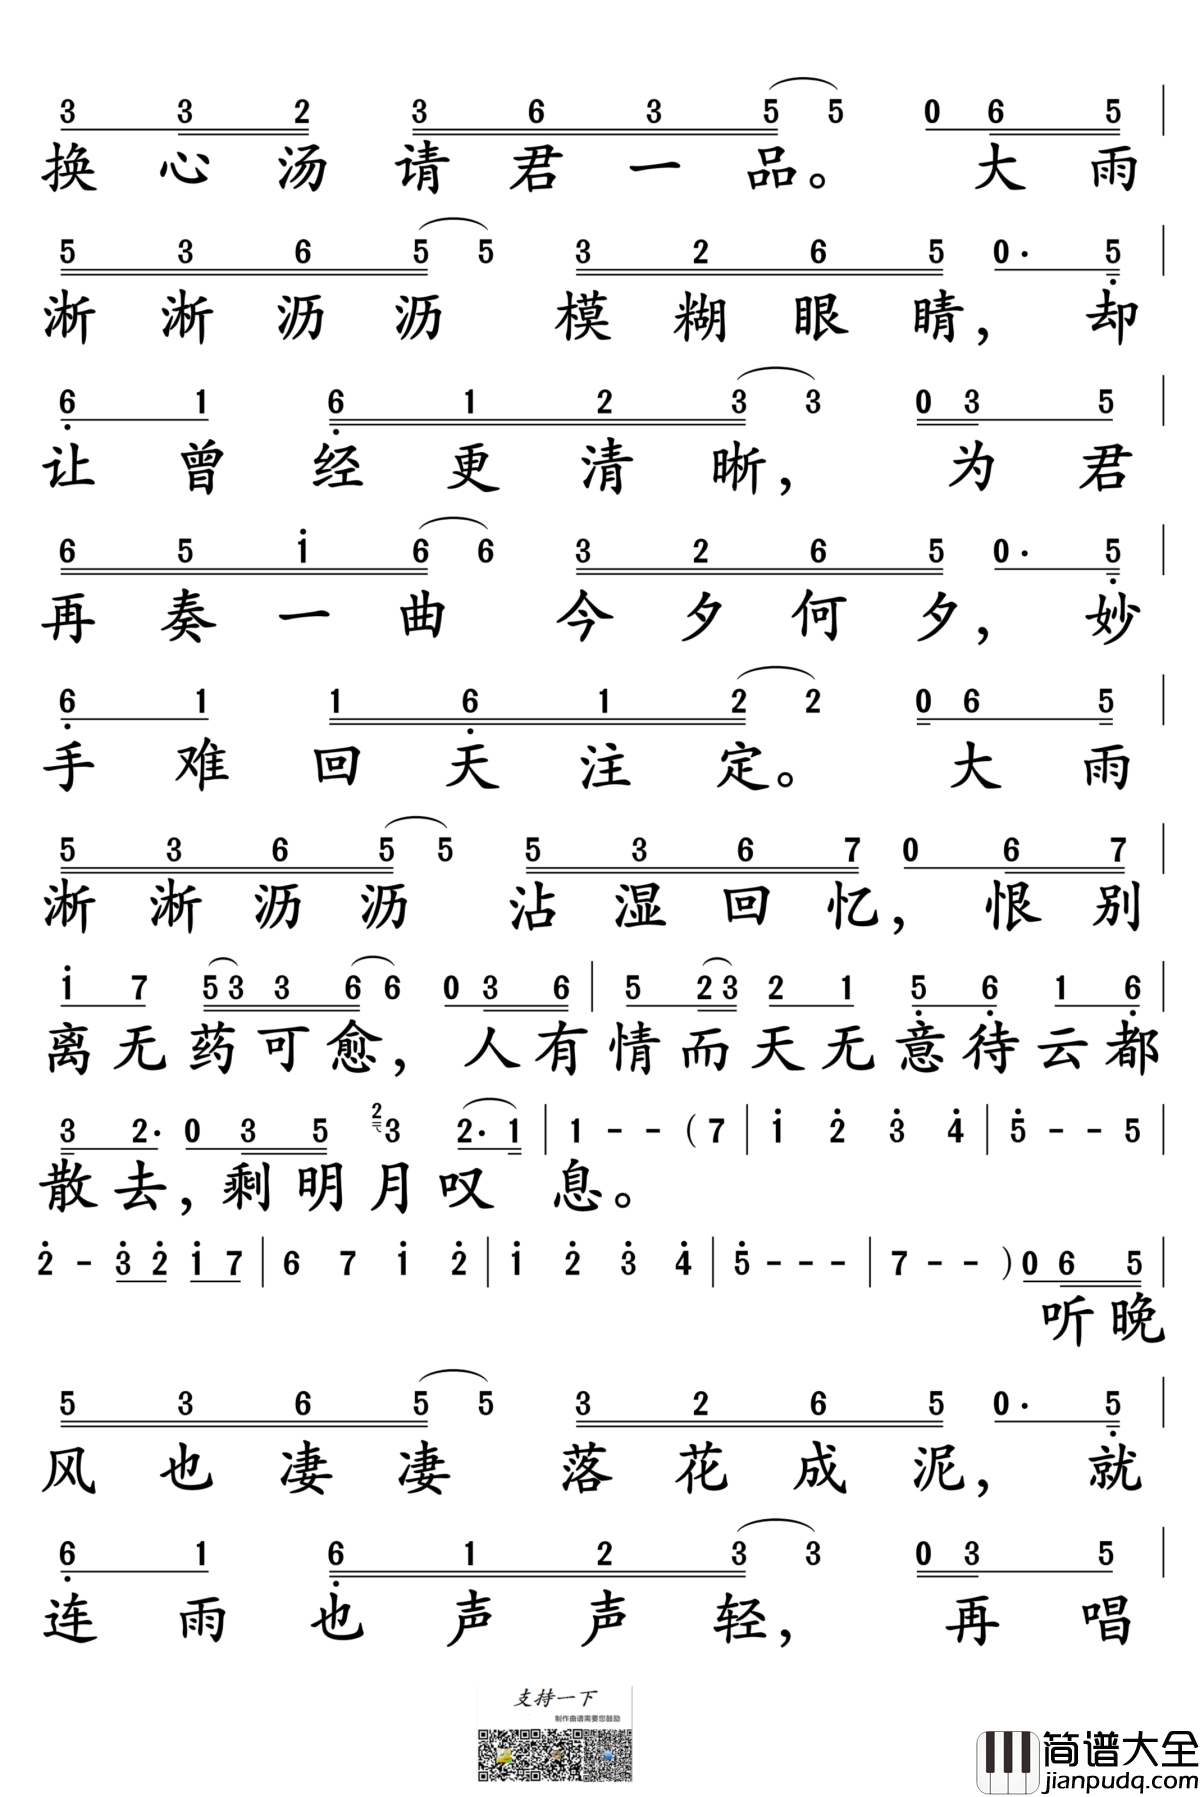 3 3 2 3 6 3 5 5 0 6 5 |
换心汤请君一品。 大雨
5 3 6 5 5 3 2 6 5 0· 5 |
淅淅沥沥 模糊眼睛, 却
6 1 6 1 2 3 3 0 3 5 |
让曾经更清晰, 为君
6 5 1 6 6 3 2 6 5 0· 5 |
再奏一曲 今夕何夕, 妙
6 1 1 6 1 2 2 0 6 5 |
手难回天注定。 大雨
5 3 6 5 5 5 3 6 7 0 6 7 |
淅淅沥沥 沾湿回忆, 恨别
1 7 5 3 3 6 6 0 3 6 | 5 2 3 2 1 5 6 1 6 |
离无药可愈, 人有情而天无意待云都
3 2· 0 3 5 2 3 2· 1 | 1 - - ( 7 | 1 2 3 4 | 5 - - 5
散去, 剩明月叹 息。
2 - 3 2 1 7 | 6 7 1 2 | 1 2 3 4 | 5 - - - | 7 - - ) 0 6 5 |
听晚
5 3 6 5 5 3 2 6 5 0· 5 |
风也凄凄 落花成泥, 就
6 1 6 1 2 3 3 0 3 5 |
连雨也声声轻, 再唱
支持一下
制作曲谱需要您鼓励
简谱大全
jianpudq.com